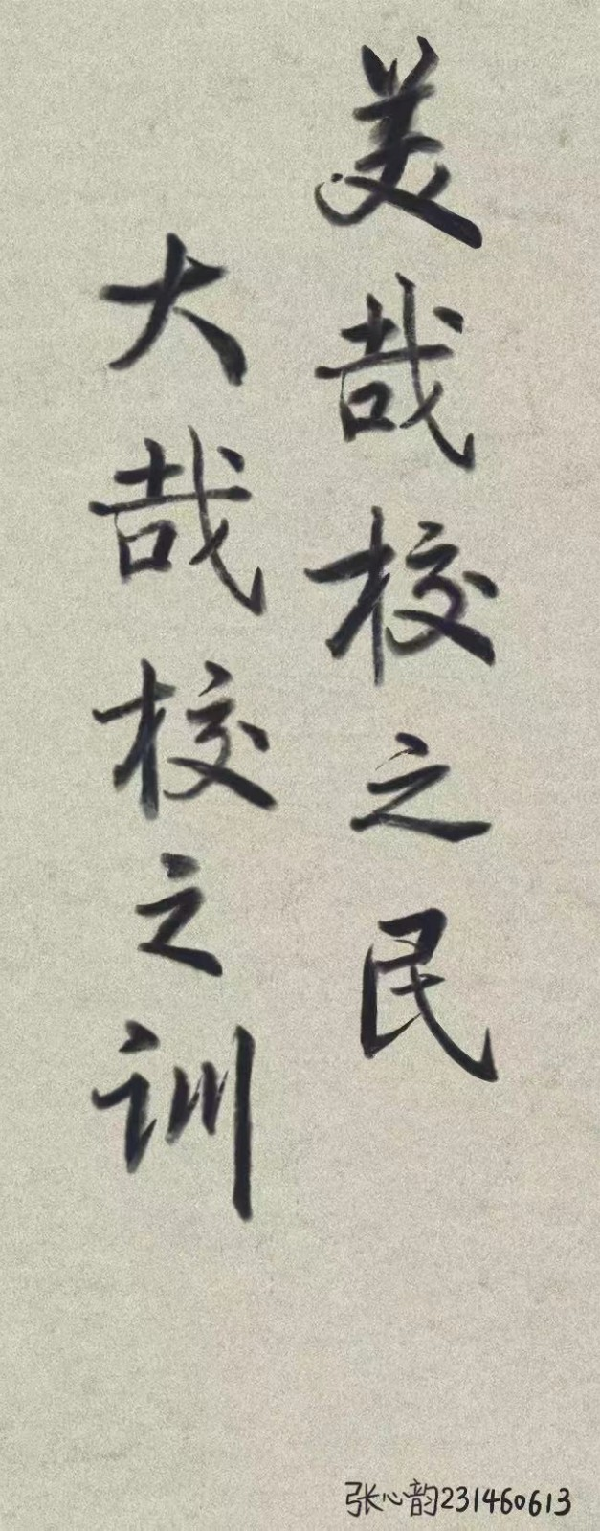 美哉校之民
大哉校之训
张心韵231460613